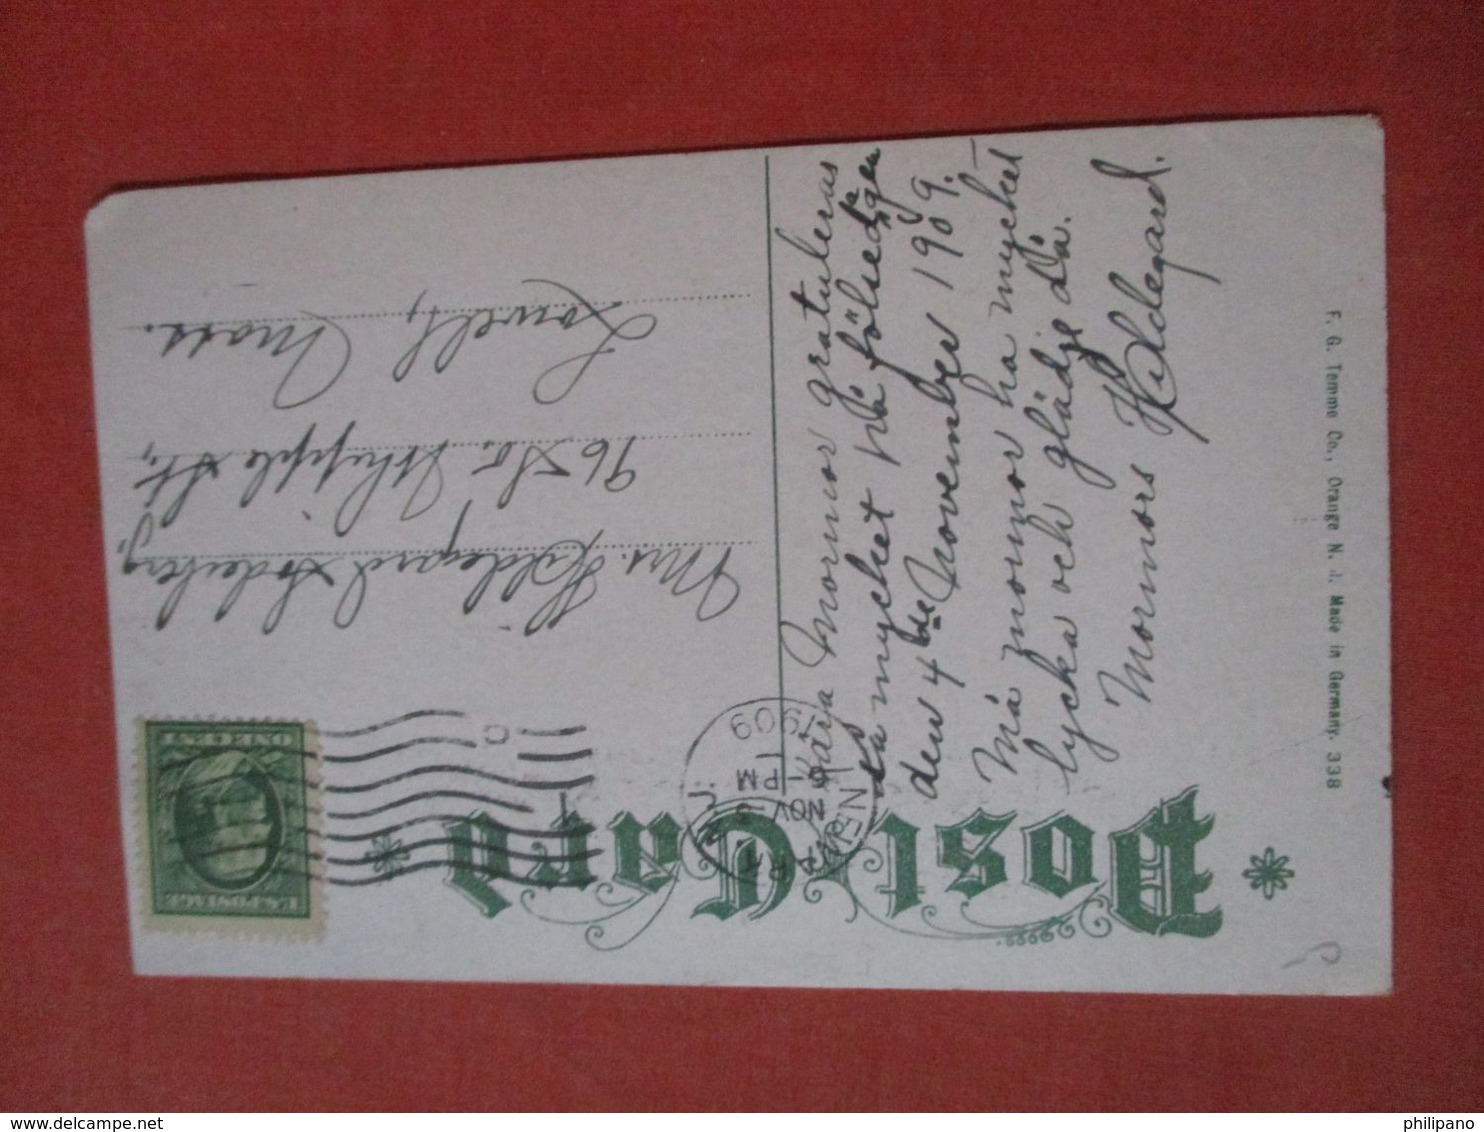 Post Card
NEWARK, N.J.
NOV 3
6-PM
1909
U.S. POSTAGE
ONE CENT
Kära Mormor gratuleras
så mycket på födelsedagen
den 4de November 1909.
Må mormor ha mycket
lycka och glädje då.
Mormors Hildegard.
Mrs. Hildegard Soderberg,
96 So. Whipple St.,
Lowell,
Mass.
F. G. Temme Co., Orange N. J. Made in Germany. 338
philipano